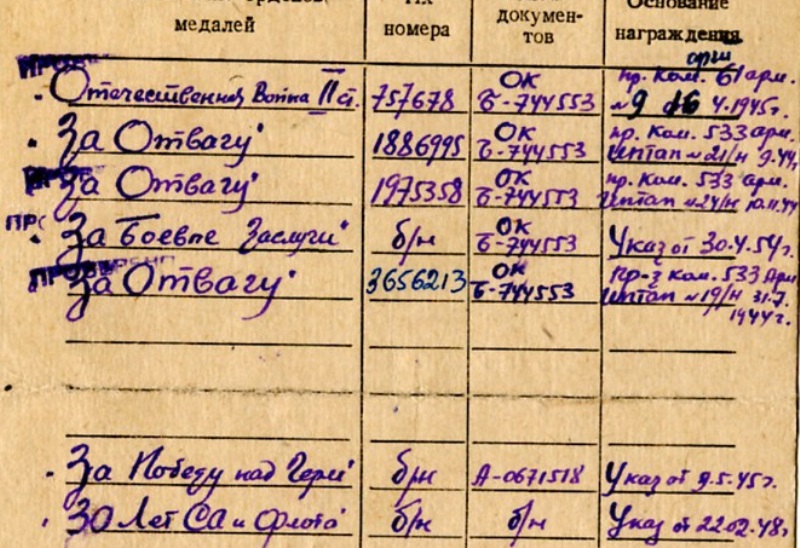 медалей
номера
докумен-
тов
Основание
награждения
Отечественная Война II ст. 757678 ОК Б-744553 пр. Ком. 61 арм. № 9 16 4.1945г.
За Отвагу 1886995 ОК Б-744553 пр. Ком. 533 арм. иптап № 21/н 9.44г
За Отвагу 1975358 ОК Б-744553 пр. Ком. 533 арм. иптап № 24/н 10.11.44
За Боевые Заслуги б/н ОК Б-744553 Указ от 30.4.54г.
За Отвагу 3656213 ОК Б-744553 Пр-з Ком. 533 Арм иптап № 19/н 31.7. 1944г.
За Победу над Герм б/н А-0671518 Указ от 9.5.45г.
30 Лет СА и Флота б/н б/н Указ от 22.02.48г